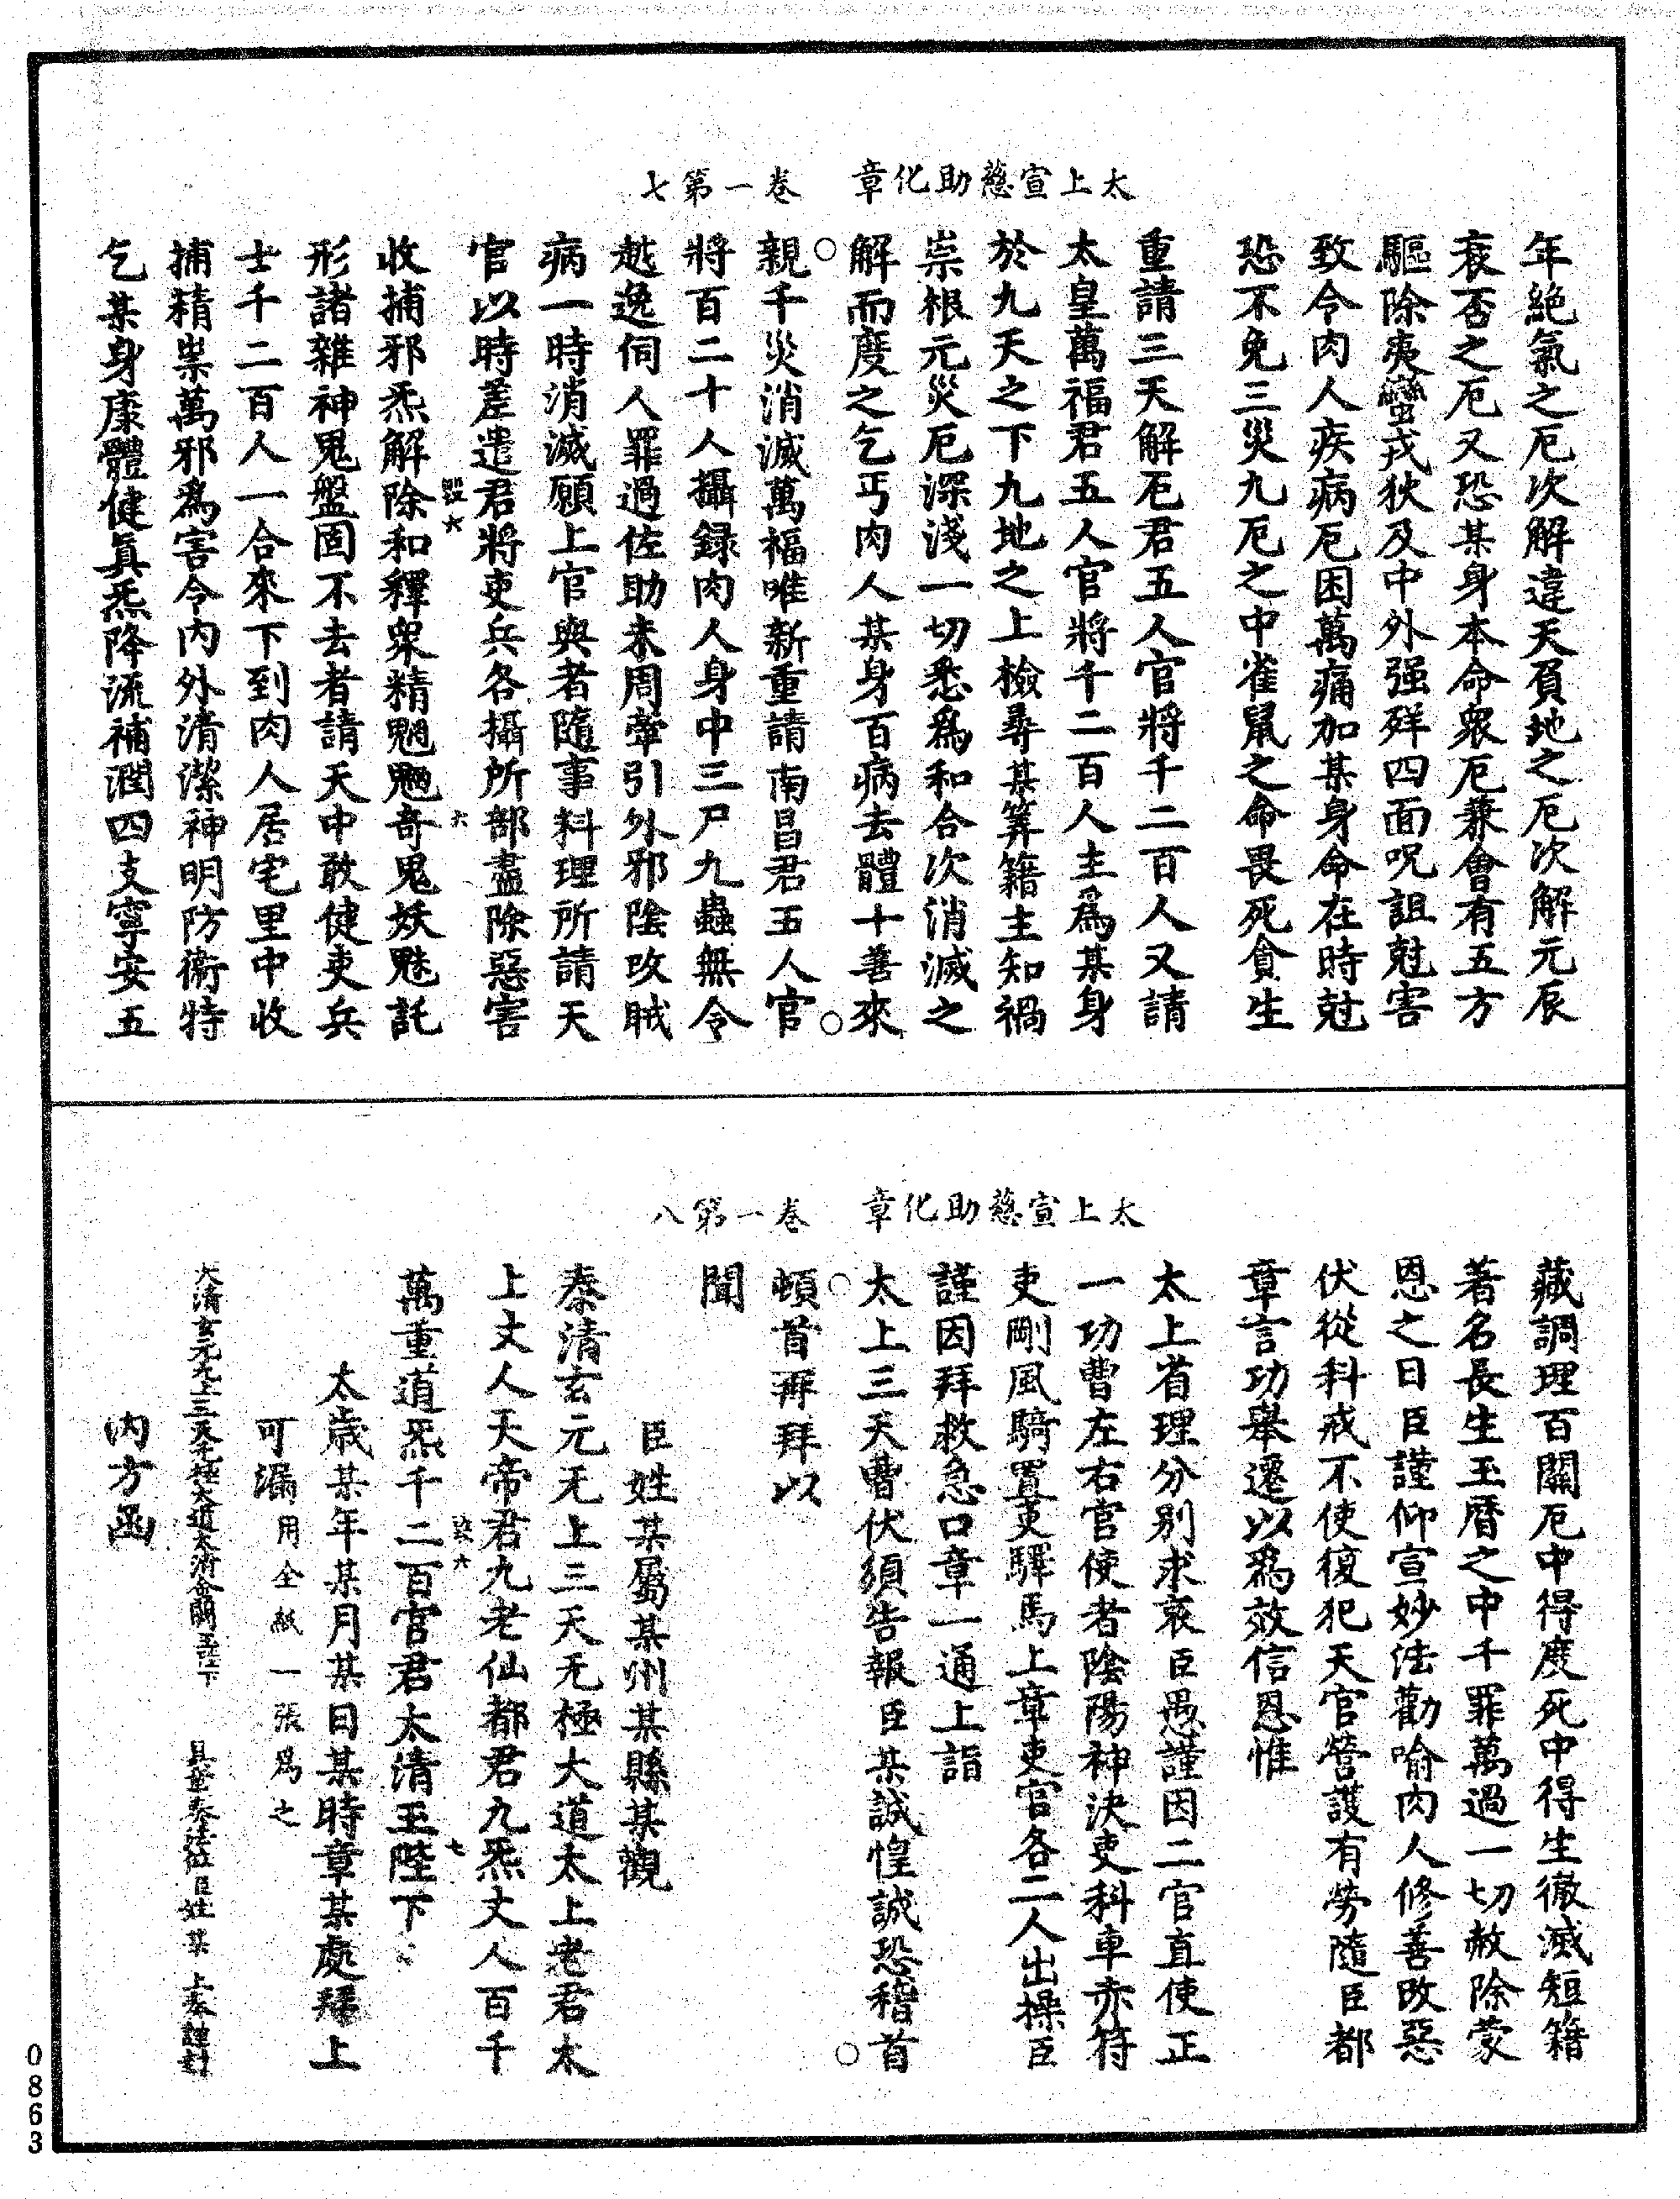 太上宣慈助化章　卷一第七
年絕氣之厄次解違天負地之厄次解元辰
衰否之厄又恐某身本命衆厄兼會有五方
驅除夷蠻戎狄及中外强殍四面呪詛尅害
致令肉人疾病厄困萬痛加某身命在時尅
恐不免三災九厄之中雀鼠之命畏死貪生
重請三天解厄君五人官將千二百人又請
太皇萬福君五人官將千二百人主爲某身
於九天之下九地之上檢尋某筭籍主知禍
祟根元災厄深淺一切悉爲和合次消滅之
解而度之乞丐肉人某身百病去體十善來
親千災消滅萬福唯新重請南昌君五人官
將百二十人攝録肉人身中三尸九蟲無令
越逸伺人罪過佐助未周牽引外邪陰攻賊
病一時消滅願上官典者隨事料理所請天
官以時差遣君將吏兵各攝所部盡除惡害
收捕邪炁解除和釋衆精魍魎奇鬼妖魅託
形諸雜神鬼盤固不去者請天中敢健吏兵
士千二百人一合來下到肉人居宅里中收
捕精祟萬邪爲害令内外清潔神明防衞特
乞某身康體健眞炁降流補潤四支寧安五
太上宣慈助化章　卷一第八
藏調理百關厄中得度死中得生徹滅短籍
著名長生玉曆之中千罪萬過一切赦除蒙
恩之日臣謹仰宣妙法勸喻肉人修善改惡
伏從科戒不使復犯天官營護有勞隨臣都
章言功舉遷以爲效信恩惟
太上省理分别求哀臣愚謹因二官直使正
一功曹左右官使者陰陽神決吏科車赤符
吏剛風騎置吏驛馬上章吏官各二人出操臣
謹因拜救急口章一通上詣
太上三天曹伏須告報臣某誠惶誠恐稽首
頓首再拜以
聞
臣姓某屬某州某縣某觀
泰清玄元无上三天无極大道太上老君太
上丈人天帝君九老仙都君九炁丈人百千
萬重道炁千二百官君太清玉陛下
太歲某年某月某日某時章某處拜上
可漏用全紙一張爲之
太清玄元无上三天无極大道太清金闕玉陛下　具籙奉法位臣姓某　上奏謹封
内方函
0863